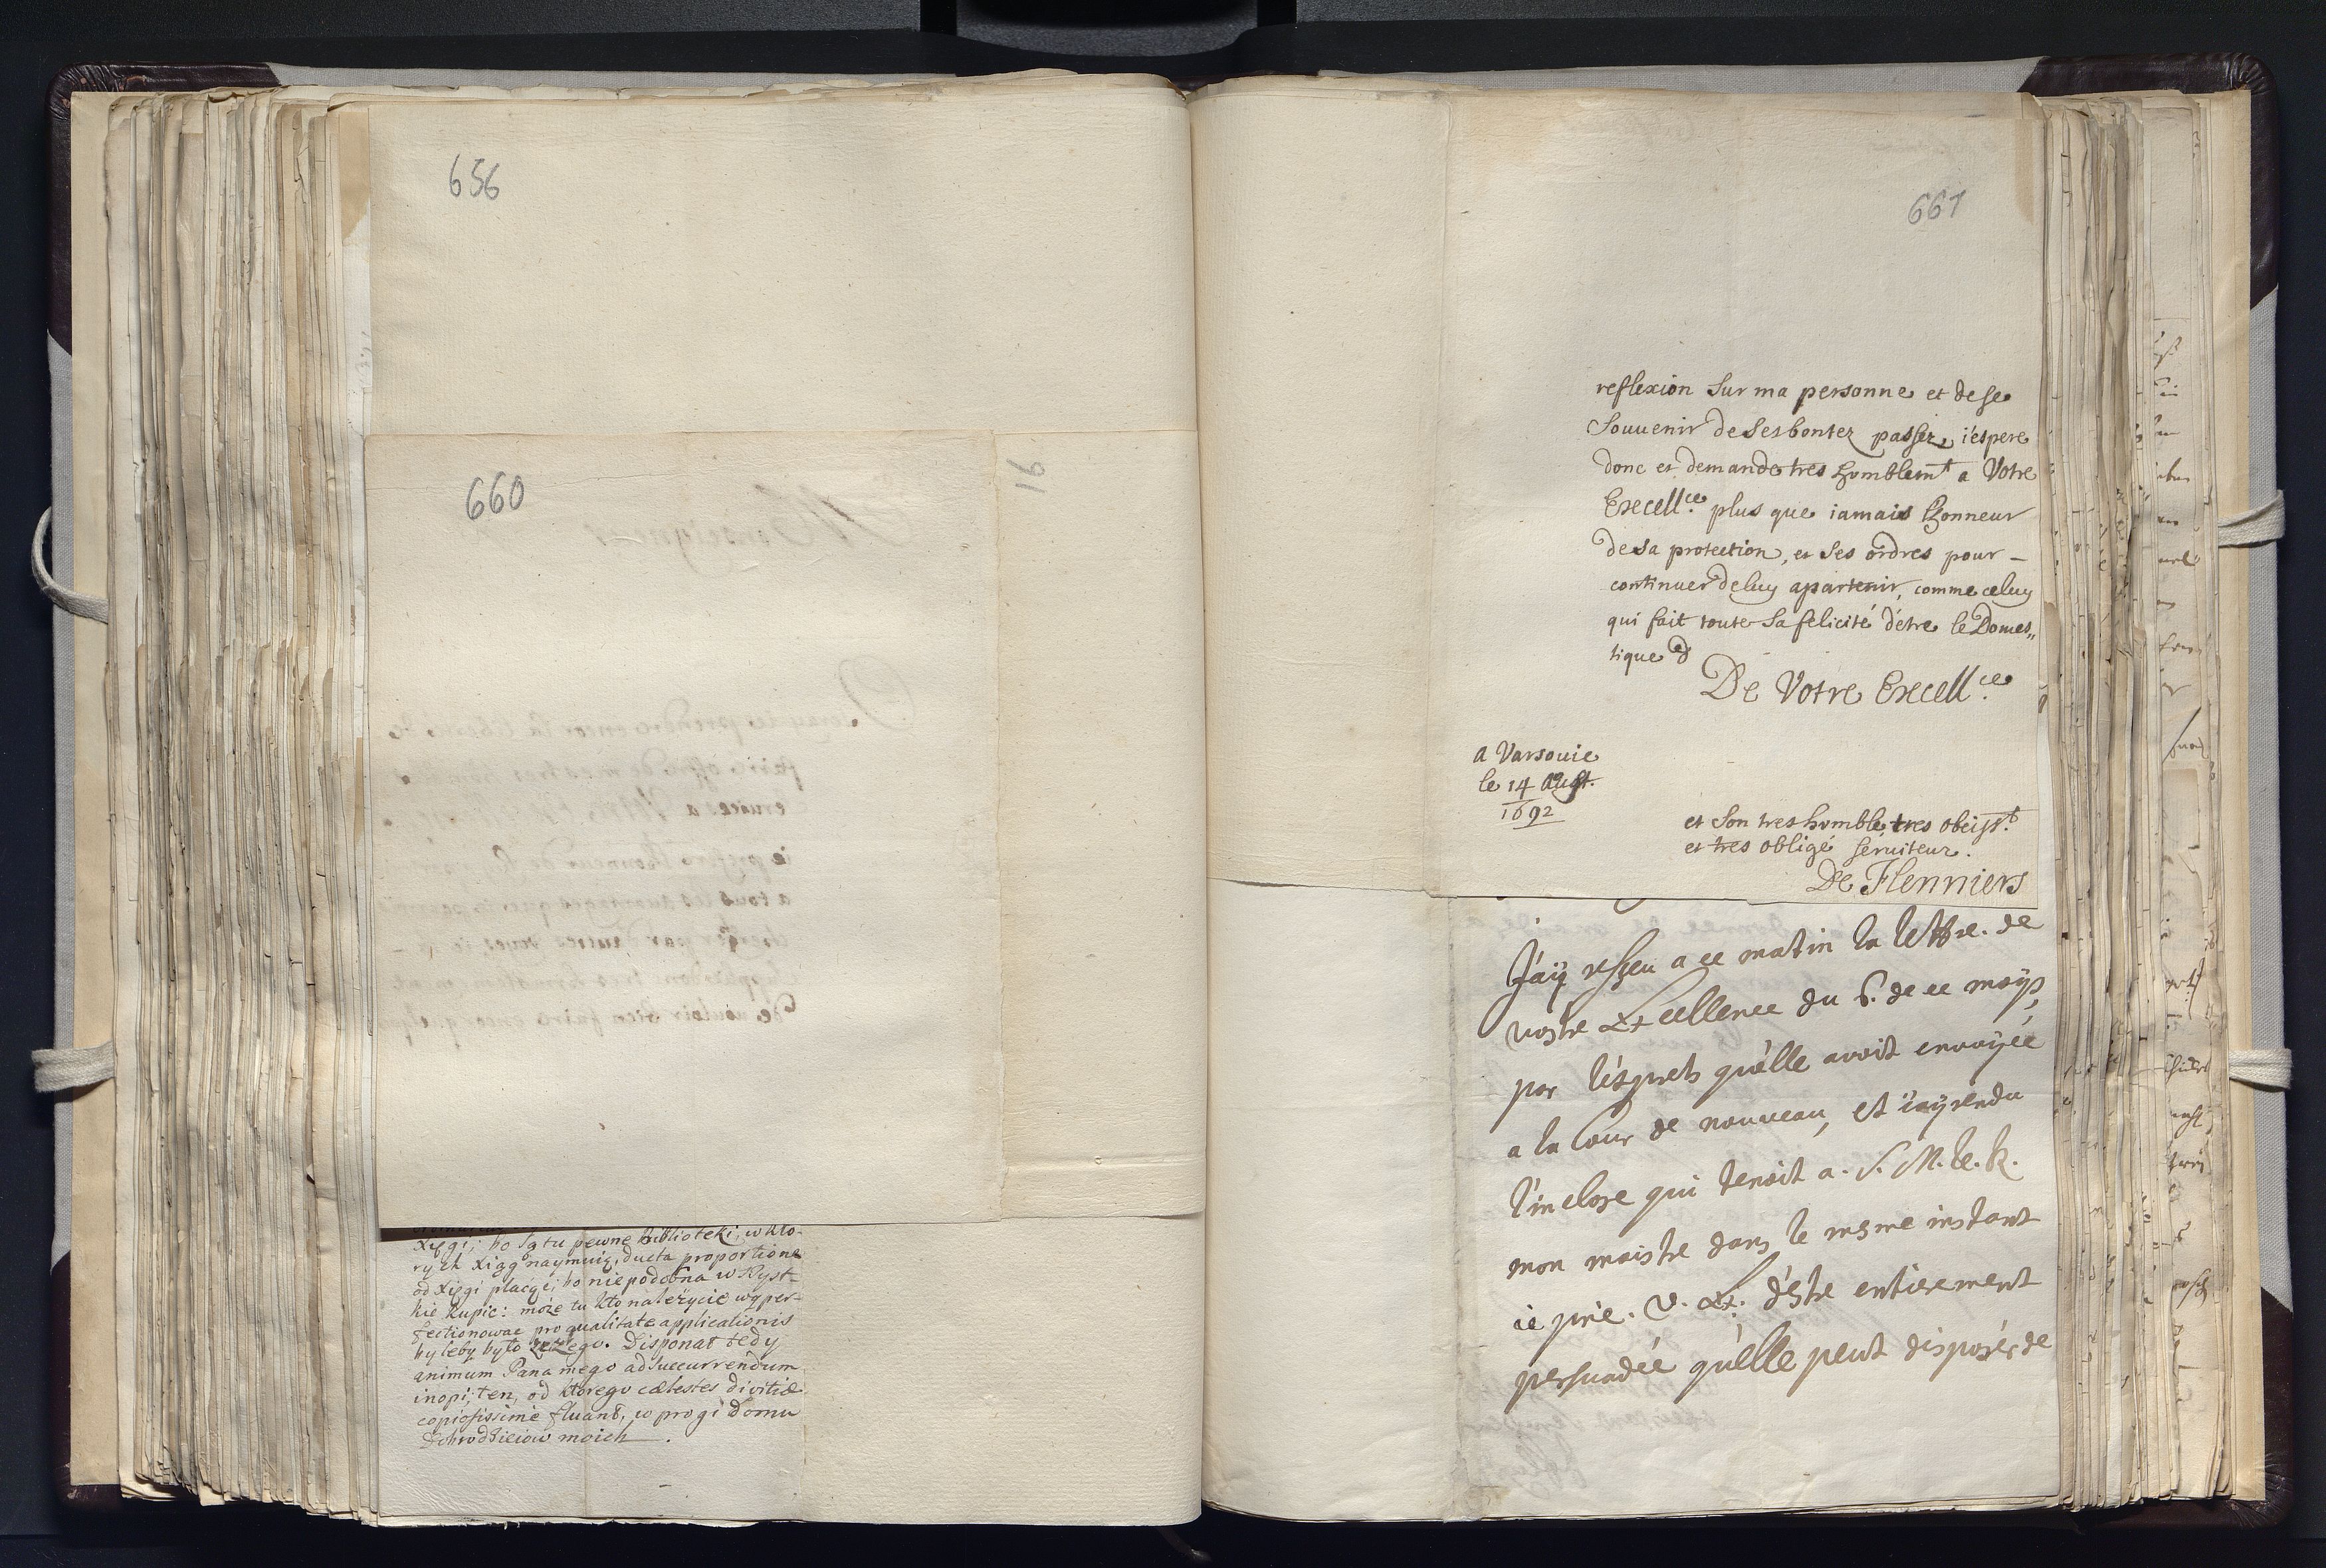 656
660
16
xięgi; bo są tu pewne biblioteki, w kto-
rych xiąg naymuią, ducta proportione
od xięgi płacąc; bo niepodobna wszyst-
kie kupić: może tu kto należycie wyper-
fectionowac pro qualitate applicationis
byleby było zczego. Disponat tedy
animum Pana mego ad succurrendum
inopi; ten, od ktorego cælestes divitiæ
copiosissimè fluant, w progi domu
Dobrodzieiow moich.
661
reflexion sur ma personne et de se
souuenir de ses bontez passez, i'espere
donc et demande tres humblemt a Votre
Execell.ce plus que iamais l'honneur
de sa protection, et ses ordres pour -
continuer de luy apartenir, comme celuy
qui fait toute sa felicité d'étre le Domes„
tique
De Votre Execell.ce
a Varsouie
le 14 Aust.
1692
et son tres humble, tres obeisst.
et tres obligé seruiteur.
De Flenniers
J'aÿ resseu a ce matin la lettre. de
vostre Excellence du 6. de ce moÿs,
par l'ésprets qu'élle avoit envoÿée
a la Cour de nouveau, et i'aÿ rendu
l'inclose qui tenoit a. S. M. le. R.
mon maistre dans le mesme instant
ie prie. V. Ex. d'éstre entierement
persuadée qu'elle peut disposér de